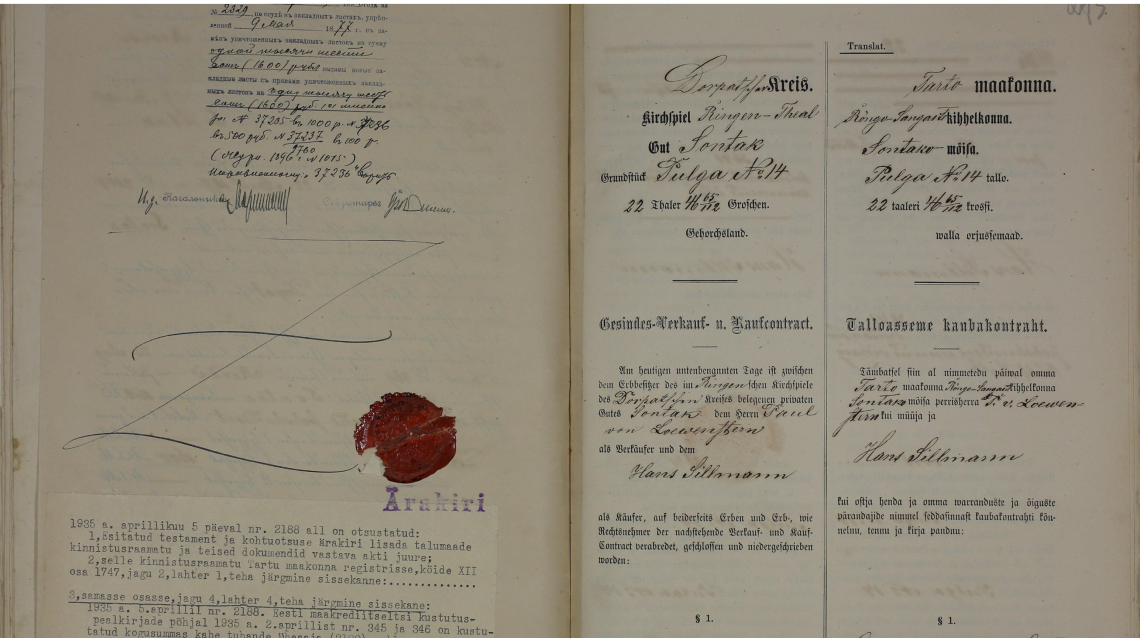 № 2329 по ссудѣ въ закладныхъ листахъ, утрѣж-
денной 9 Мая 1877 г. въ за-
мѣнъ уничтоженныхъ закладныхъ листовъ на сумму
одной тысячи шести
сотъ (1600) рубл выданы новые за-
кладные листы съ правами уничтоженныхъ заклад-
ныхъ листовъ на одну тысячу шест
сотъ (1600) руб.
№ 37235 въ 1000 р. № 37236
въ 500 руб. № 37237 въ 100 р.
9760
И. д. Начальника
Секретарь
Ärakiri
1935 a. aprillikuu 5 päeval nr. 2188 all on otsustatud:
1,Esitatud testament ja kohtuotsuse ärakiri lisada talumaade
kinnistusraamatu ja teised dokumendid vastava akti juure;
2,selle kinnistusraamatu Tartu maakonna registrisse,köide XII
osa 1747,jagu 2,lahter 1,teha järgmine sissekanne:..............
3,samasse osasse,jagu 4,lahter 4,teha järgmine sissekane:
1935 a. 5.aprillil nr. 2188. Eesti maakrediitseltsi kustutus-
pealkirjade põhjal 1935 a. 2.aprillist nr. 345 ja 346 on kustu-
tatud kogusummas kahe tuhande
Dorpatscher Kreis.
Kirchspiel Ringen-Theal
Gut Sontak
Grundstück Pulga No. 14
22 Thaler 46 65/112 Groschen.
Gehorchsland.
Gesindes-Verkauf- u. Kaufcontract.
Am heutigen untenbenannten Tage ist zwischen
dem Erbbesitzer des im Ringenschen Kirchspiele
des Dorpatschen Kreises belegenen privaten
Gutes Sontak dem Herrn Paul
von Loewenstern
als Verkäufer und dem
Hans Sillmann
als Käufer, auf beiderseits Erben und Erb-, wie
Rechtsnehmer der nachstehende Verkauf- und Kauf-
Contract verabredet, geschlossen und niedergeschrieben
worden:
§ 1.
Translat.
Tarto maakonna.
Röngo-Sangast kihhelkonna.
Sontako mõisa.
Pulga No. 14 tallo.
22 taaleri 46 65/112 krossi.
walla orjusemaad.
Talloasseme kaubakontraht.
Tämbatsel siin al nimmetedu päiwal omma
Tarto maakonna Röngo-Sangast kihhelkonna
Sontako mõisa perrisherra P. v. Loewen
stern kui müüja ja
Hans Sillmann
kui ostja henda ja omma warranduste ja õiguste
pärandajide nimmel seddasinnast kaubakontrahti kõn-
nelnu, tennu ja kirja pandnu:
§ 1.